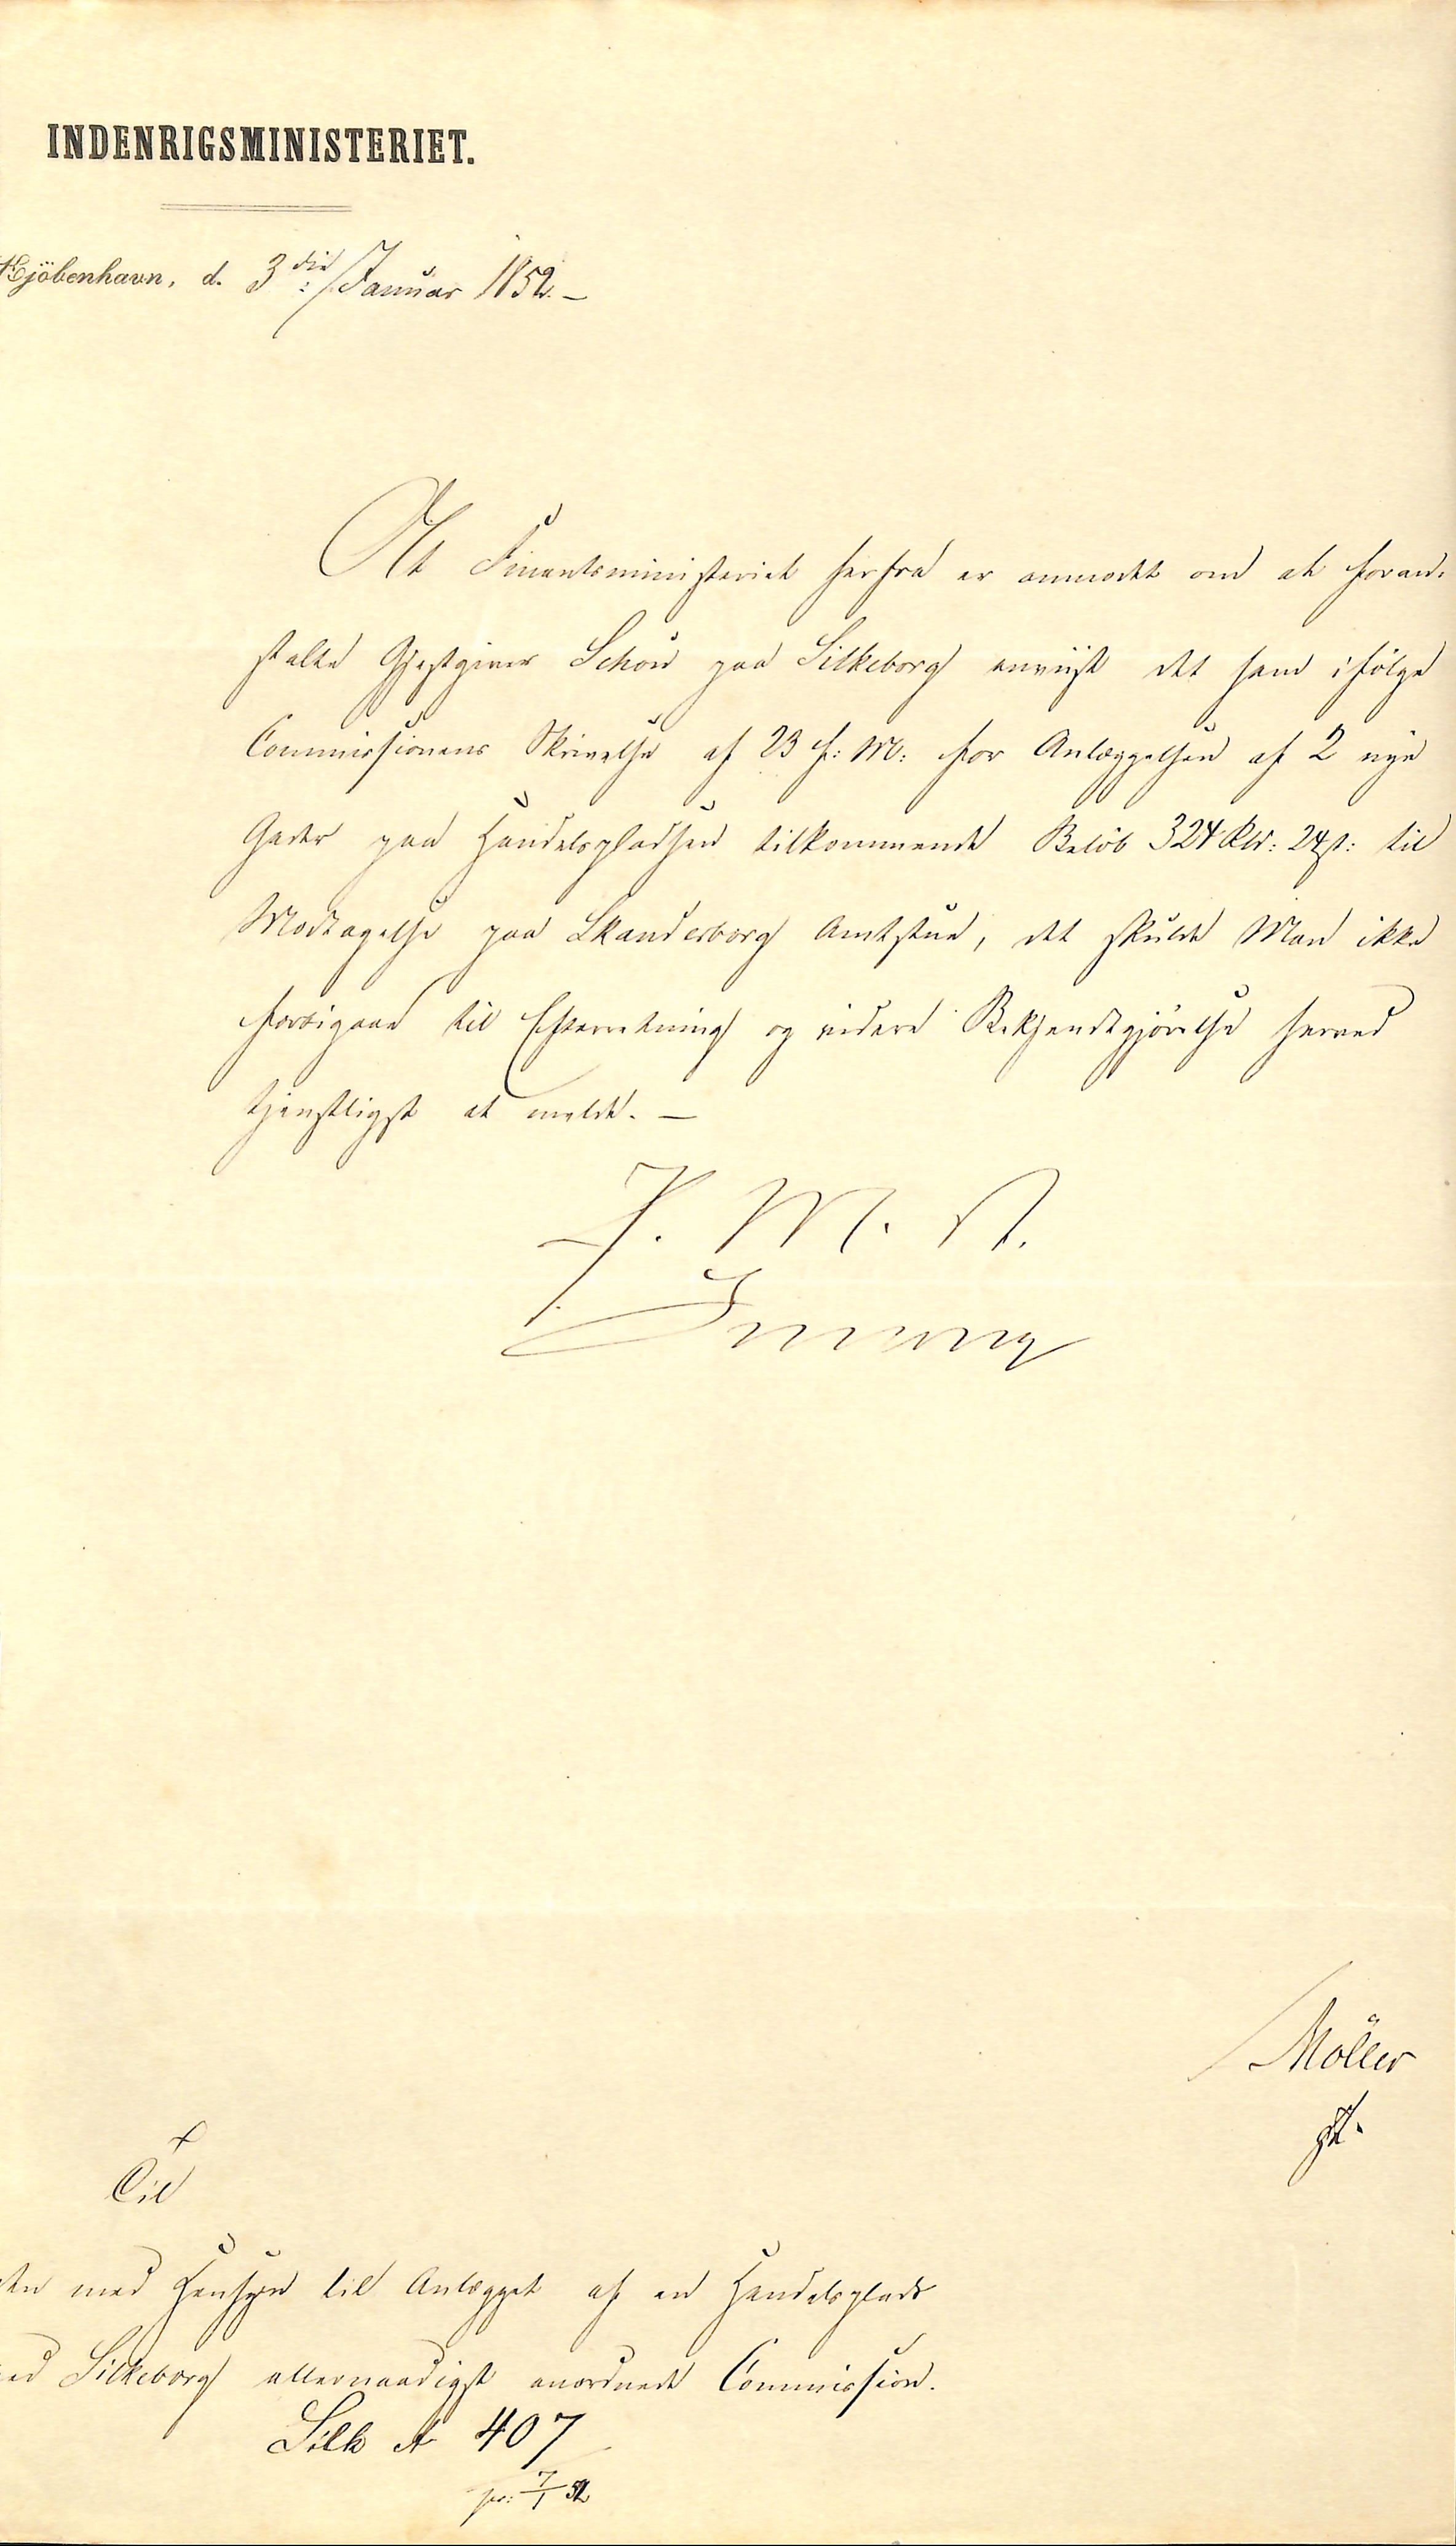 INDENRIGSMINISTERIET.
Kjöbenhavn, d. 3die Januar 1852.-
At Finantsministeriet herfra er anmodet om at foran-
stalte Gjestgiver Schou paa Silkeborg anviist det ham ifölge
Commissionens Skrivelse af 23 f: M: for Anlæggelsen af 2 nye
Gader paa Handelspladsen tilkommende Belöb 324 Rbd: 24 sk: til
Modtagelse paa Skanderborg Amtstue, det skulde Man ikke
forbigaae til Efterretning og videre Bekjendtgjörelse herved
tjenstligst at melde. —
F. M. A.
Möller
Til
den med Hensyn til Anlægget af en Handelsplads
ved Silkeborg allernaadigst anordnede Commission.
Silk A 407
pr: 7/1 52